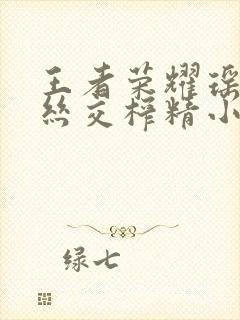 王者荣耀瑶
丝交榨精小
绿七